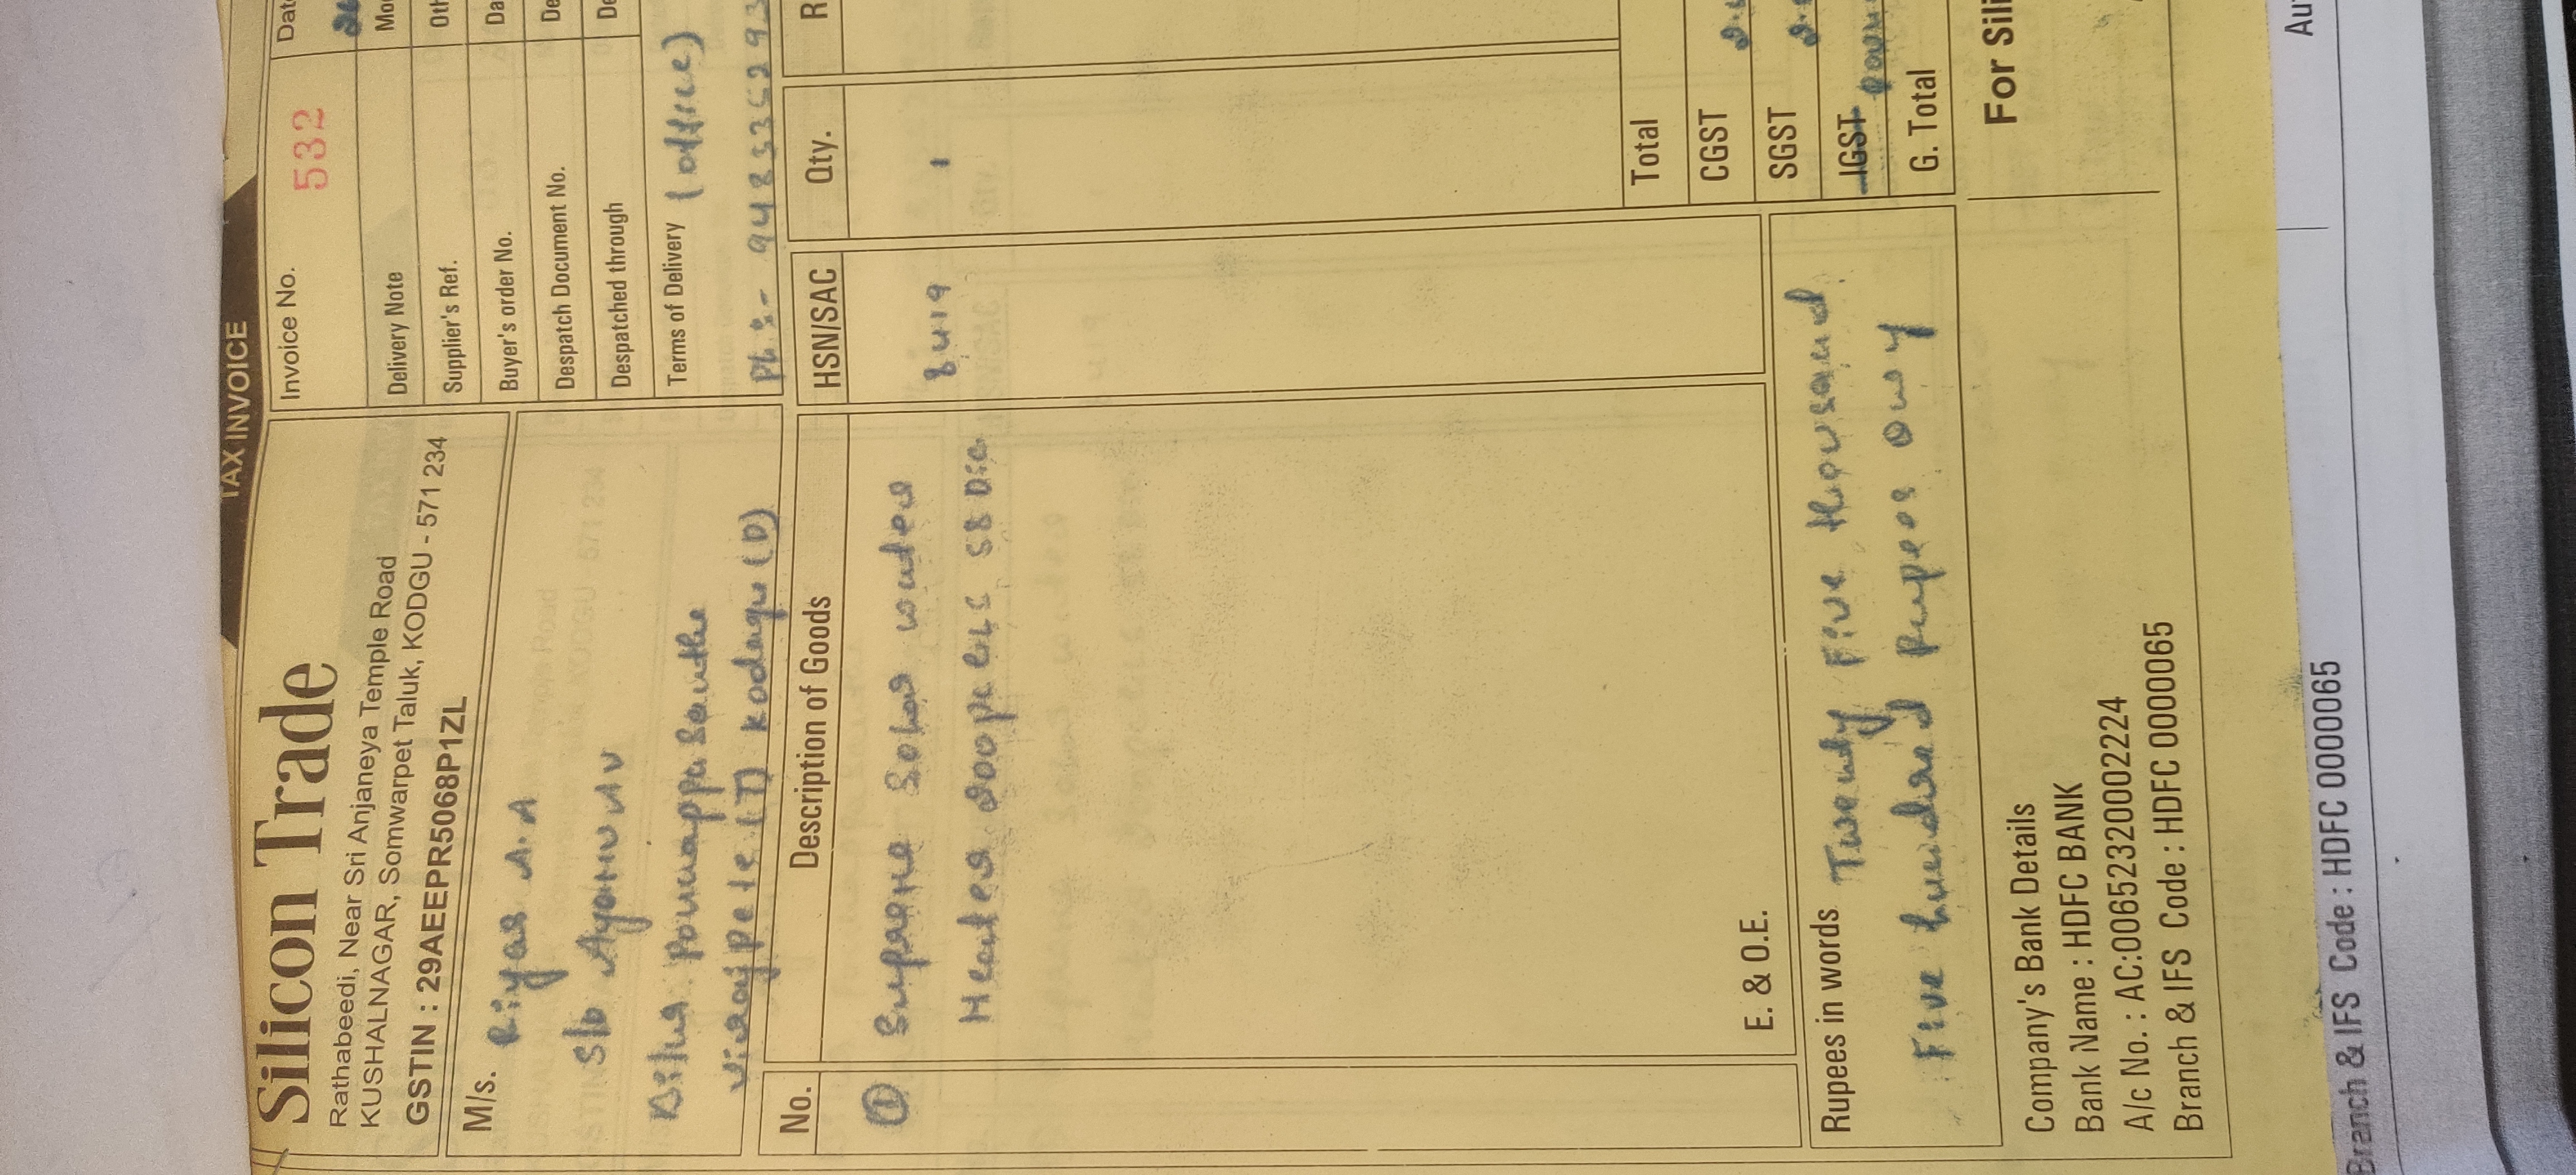 TAX INVOICE
Silicon Trade
Rathabeedi, Near Sri Anjaneya Temple Road
KUSHALNAGAR, Somwarpet Taluk, KODGU - 571 234
GSTIN : 29AEEPR5068P1ZL
Invoice No.
532
Delivery Note
Supplier's Ref.
Buyer's order No.
Despatch Document No.
Despatched through
Terms of Delivery (office)
Ph:- 9483352293
M/s. Riyas A.A
S/o
Ponnappa Santhe
Virajpete (T) Kodagu (D)
No. Description of Goods HSN/SAC Qty.
1 Supreme Solar water 8419 1
Heater 200
E. & O.E.
Total
CGST
SGST
IGST
G. Total
Rupees in words Twenty Five thousand
Five hundred Rupees Only
Company's Bank Details
Bank Name : HDFC BANK
A/c No. : AC:00652320002224
Branch & IFS Code : HDFC 0000065
For Sili
Branch & IFS Code : HDFC 0000065